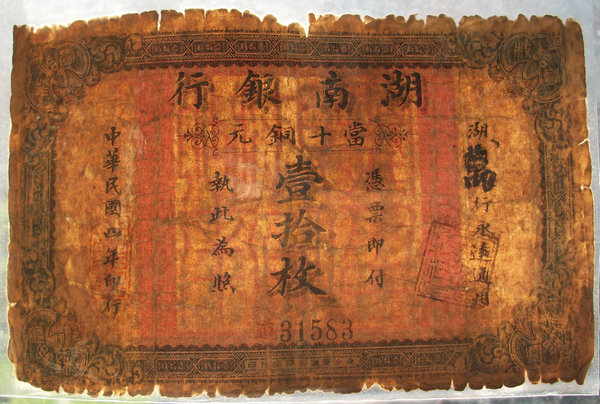 湖南銀行
當十銅元
湖
行永遠通用
憑票即付
壹拾枚
執此為照
中華民國四年印行
31583